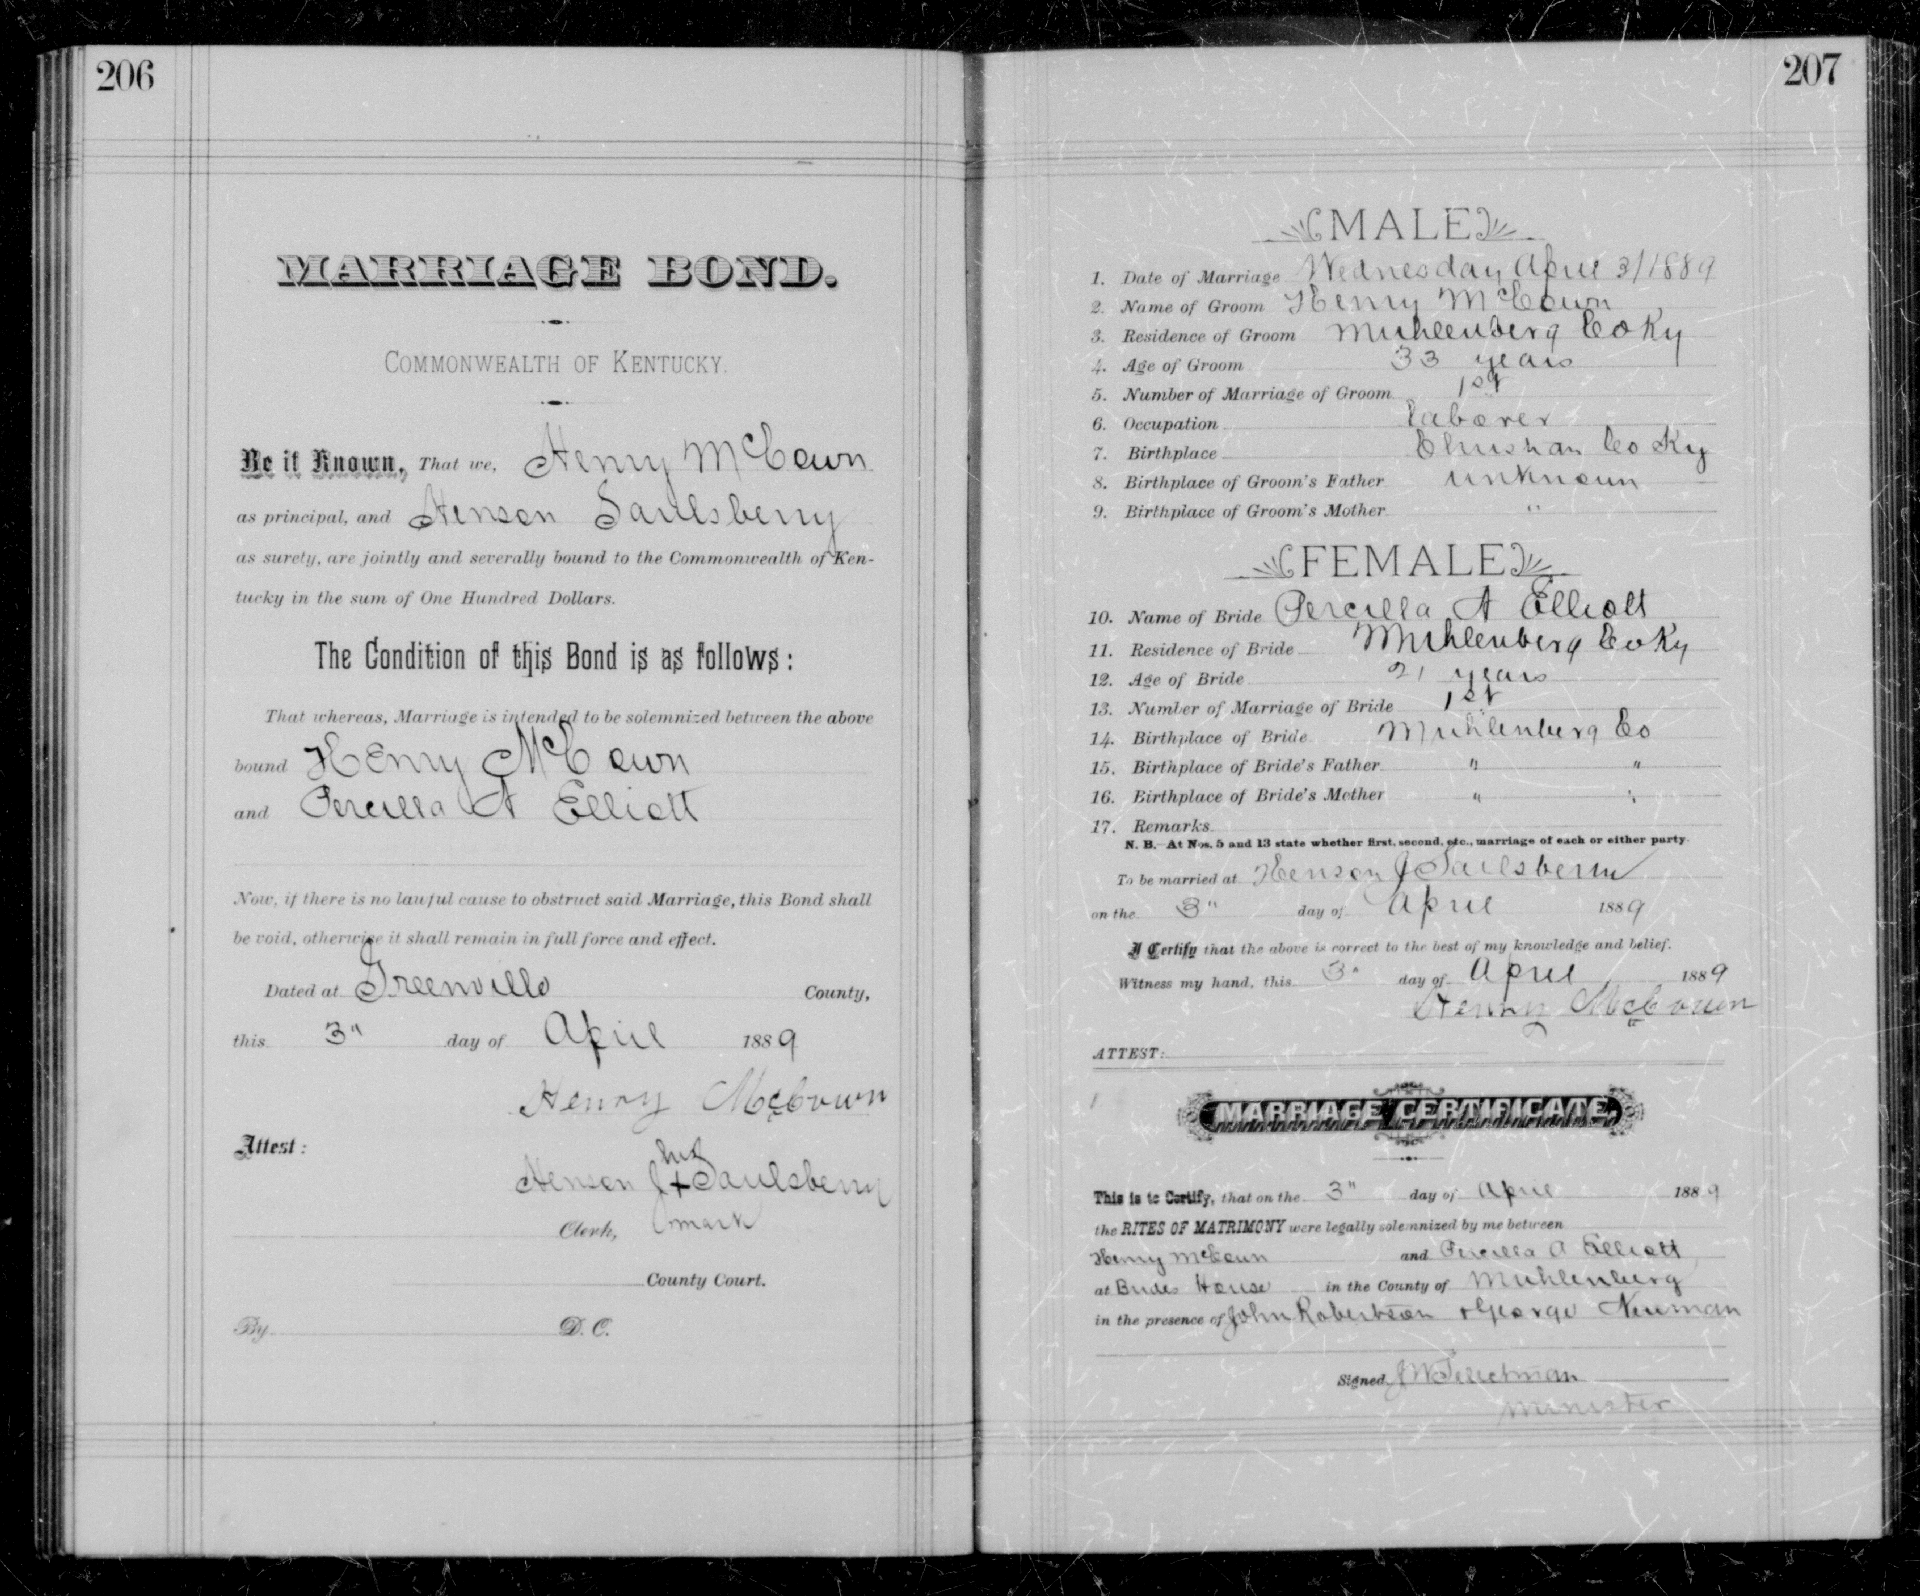 206
MARRIAGE BOND.
COMMONWEALTH OF KENTUCKY.
Be it Known, That we, Henry McCown
as principal, and Henson Saulsberry
as surety, are jointly and severally bound to the Commonwealth of Ken-
tucky in the sum of One Hundred Dollars.
The Condition of this Bond is as follows:
That whereas, Marriage is intended to be solemnized between the above
bound Henry McCown
and Percilla A Elliott
Now, if there is no lawful cause to obstruct said Marriage, this Bond shall
be void, otherwise it shall remain in full force and effect.
Dated at Greenville County,
this 3" day of April 1889
Henry McCown
Attest:
his
Henson J + Saulsberry
Clerk, mark
County Court.
By D. C.
207
MALE
1. Date of Marriage Wednesday April 3/1889
2. Name of Groom Henry McCown
3. Residence of Groom Muhlenberg Co Ky
4. Age of Groom 33 years
5. Number of Marriage of Groom 1st
6. Occupation Laborer
7. Birthplace Christian Co Ky
8. Birthplace of Groom's Father unknown
9. Birthplace of Groom's Mother "
FEMALE
10. Name of Bride Percilla A Elliott
11. Residence of Bride Muhlenberg Co Ky
12. Age of Bride 21 years
13. Number of Marriage of Bride 1st
14. Birthplace of Bride Muhlenberg Co
15. Birthplace of Bride's Father " "
16. Birthplace of Bride's Mother " "
17. Remarks
N. B.—At Nos. 5 and 13 state whether first, second, etc., marriage of each or either party.
To be married at Henson J Saulsberry
on the 3" day of April 1889
I Certify that the above is correct to the best of my knowledge and belief.
Witness my hand, this 3" day of April 1889
Henry McCown
ATTEST:
MARRIAGE CERTIFICATE
This is to Certify, that on the 3" day of April 1889
the RITES OF MATRIMONY were legally solemnized by me between
Henry McCown and Percilla A Elliott
at Brides House in the County of Muhlenberg
in the presence of John Robertson & George Newman
Signed J W
Minister